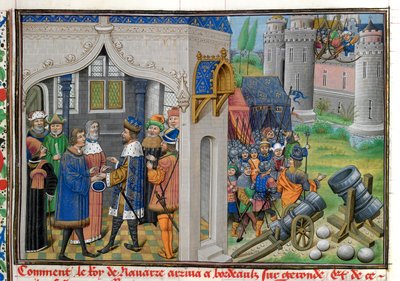 Comment le Roy de Nauarre arriua a bordeaulx sur geronde Et de ce